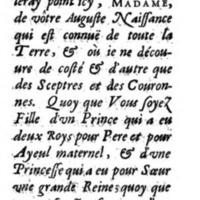 leray point icy, MADAME,
de vôtre Auguste Naissance
qui est connuë de toute la
Terre, & où ie ne décou-
ure de costé & d'autre que
des Sceptres et des Couron-
nes. Quoy que Vous soyez
Fille d'vn Prince qui a eu
deux Roys pour Pere et pour
Ayeul maternel, & d'vne
Princesse qui a eu pour Sœur
vne grande Reine; quoy que